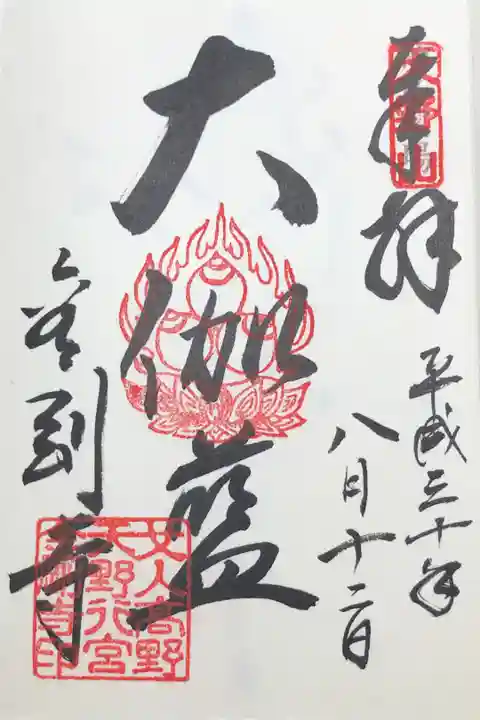 奉拝
天野山
平成三十年
八月十二日
大伽藍
金剛寺
女人高野
天野行宮